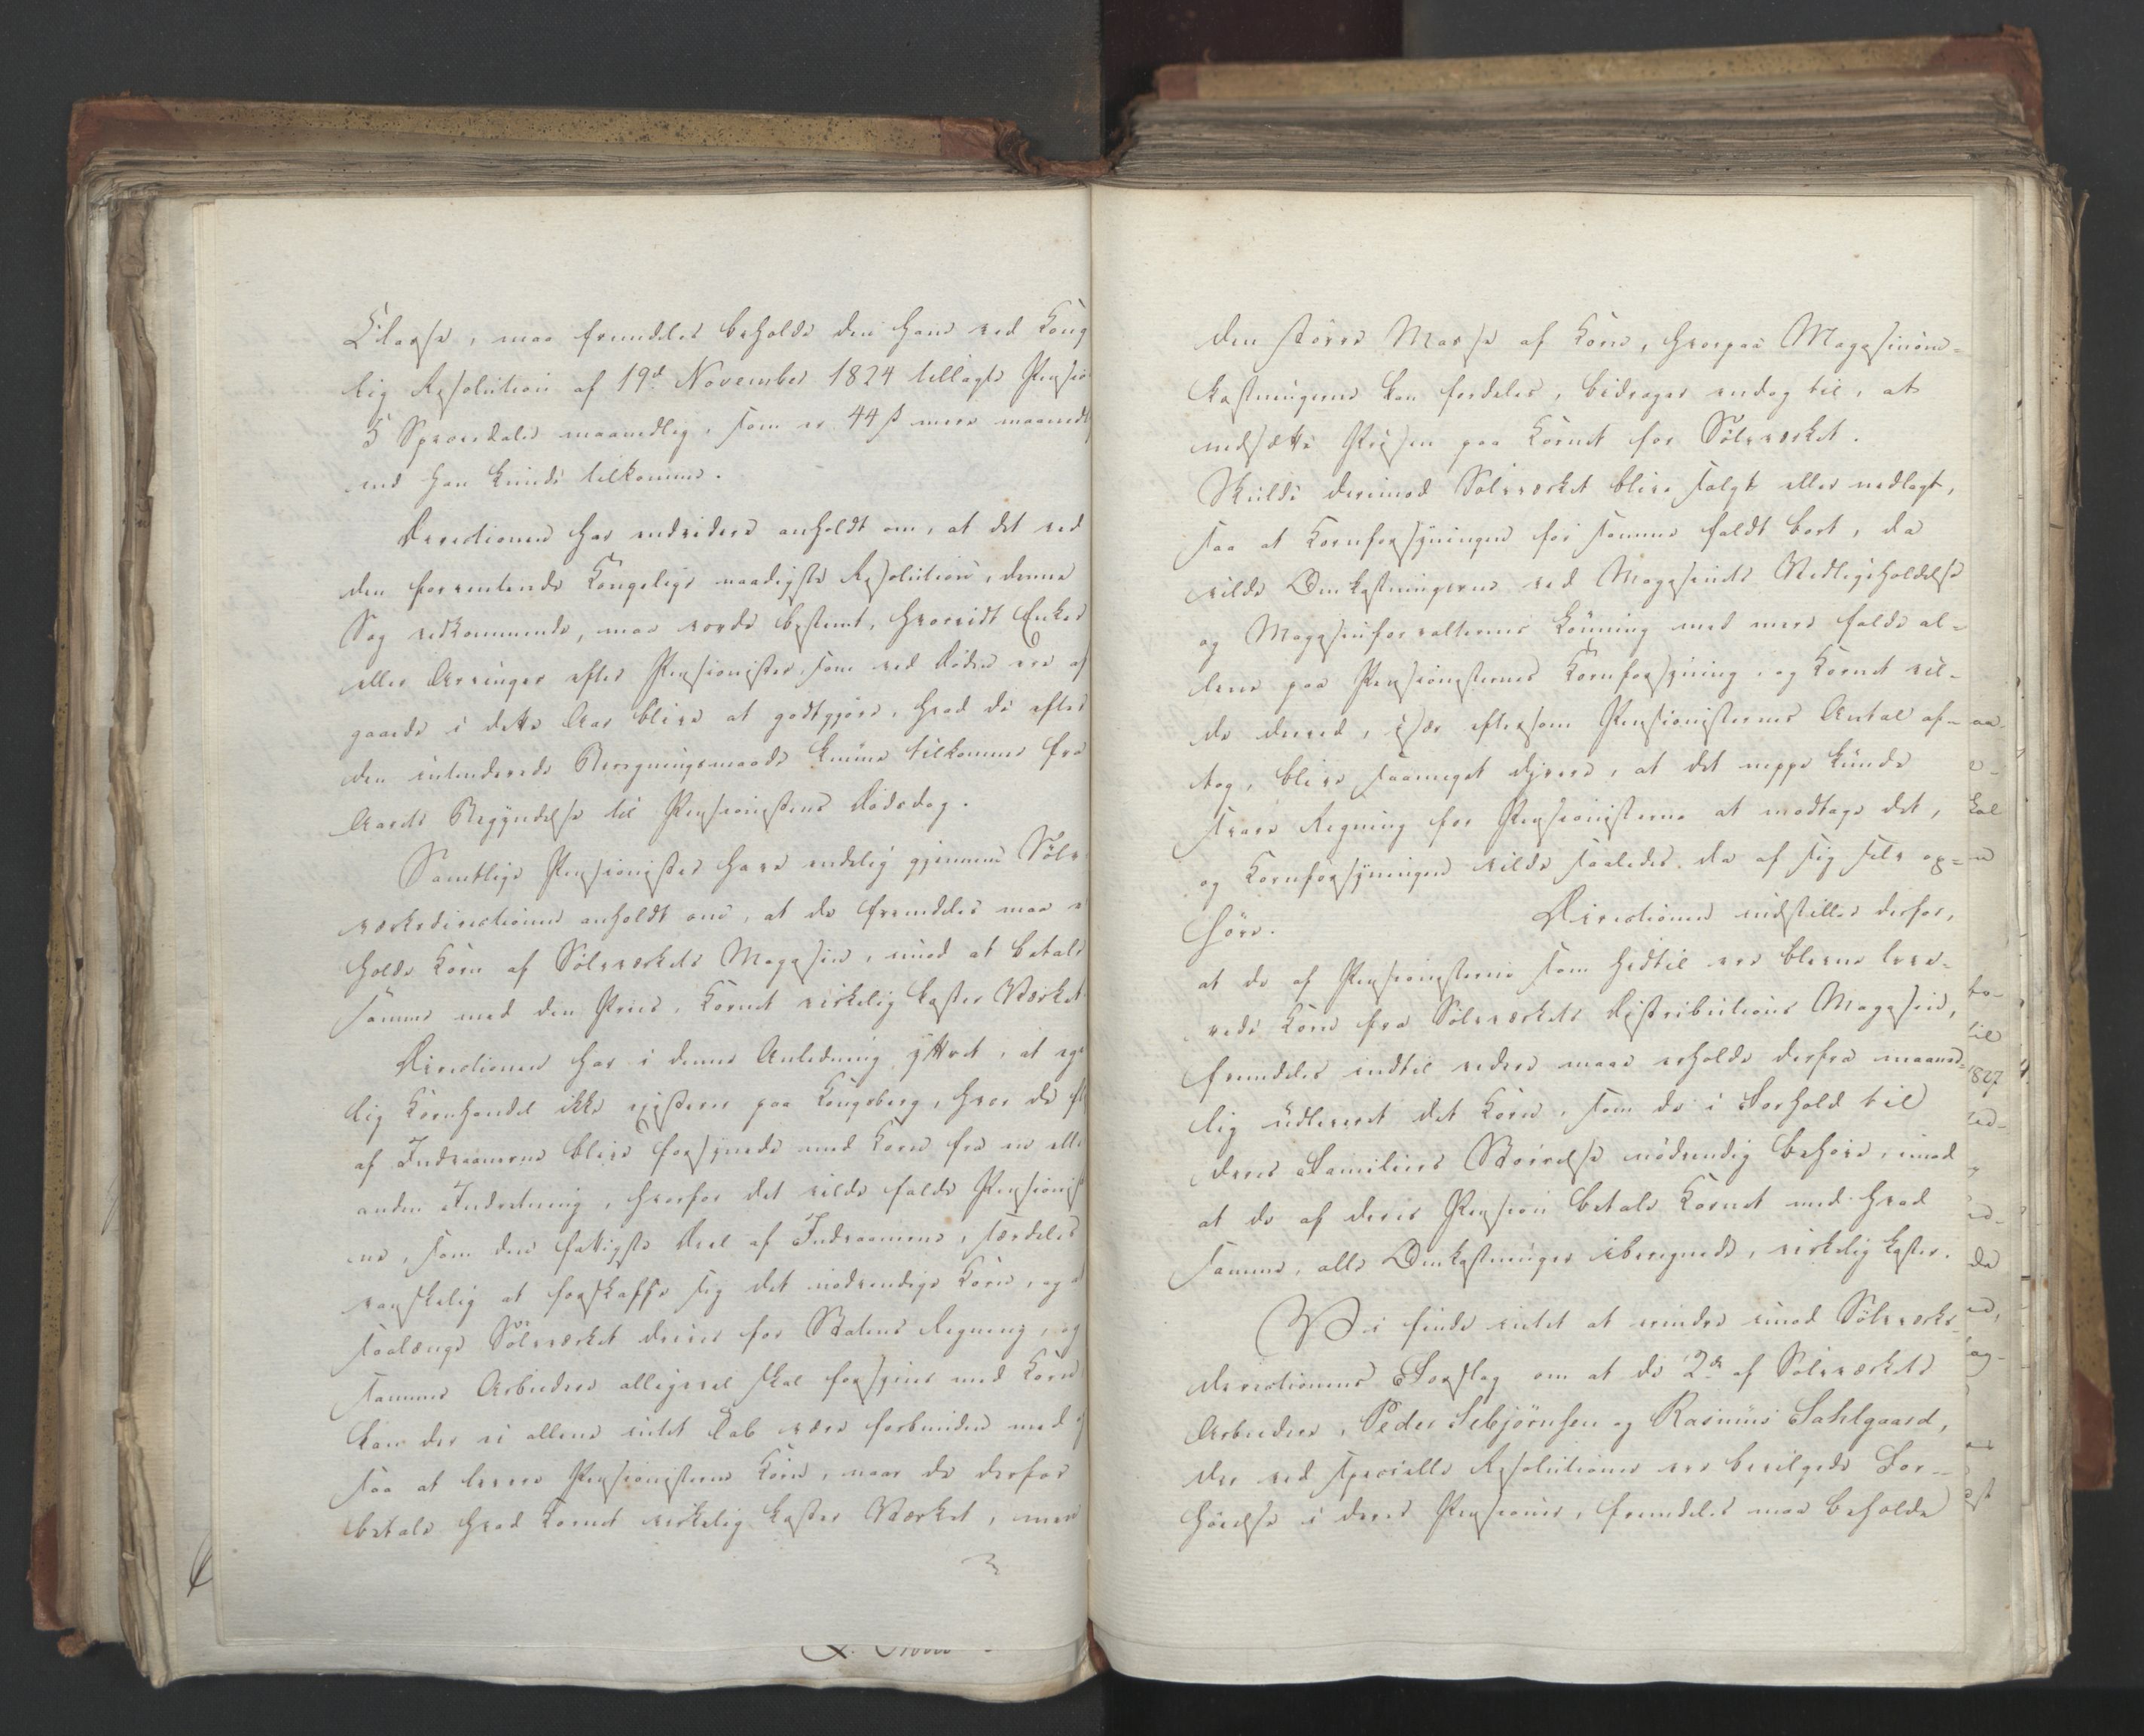 Classe, maa fremdeles beholde den ham ved Konge
lig Resolution af 19de November 1824 tillagte Pension
5 Speciedaler maanedlig, som er 44 ß mere maanedl
end han kunde tilkomme.
Directionen har endvidere anholdt om, at det ved
den forventende Kongelige naadigste Resolution, denne
Sag vedkommende, maa vorde bestemt, hvorvidt Enker
eller Arvinger efter Pensionister, som ved Døden ere af
gaaede i dette Aar blive at godtgjøre, hvad de efter
den intenderede Beregningsmaade kunne tilkomme fra
Aarets Begyndelse til Pensionistens Dødsdag.
Samtlige Pensionister have endelig gjennem Sølv
værksdirectionen anholdt om, at de fremdeles maa er
holde Korn af Sølvværkets Magasin, imod at betale
samme med den Priis, Kornet virkelig koster Værket.
Directionen har i denne Anledning yttret, at egent
lig Kornhandel ikke existerer paa Kongsberg, hvor de fl
af Indvaanerne blive forsynede med Korn fra en eller
anden Indretning, hvorfor det vilde falde Pensionist
erne, som den fattigste Deel af Indvaanerne, særdeles
vanskelig at forskaffe sig det nødvendige Korn, og at
saalænge Sølvværket drives for Statens Regning, og
sammes Arbeidere alligevel skal forsynes med Korn,
kan der ei allene intet Tab være forbunden med og
saa at levere Pensionisterne Korn, naar de derfor
betale hvad Kornet virkelig koster Værket, men
den større Masse af Korn, hvorpaa Magasinom-
kostningerne kan fordeles, bidrager endog til, at
nedsætte Prisen paa Kornet for Sølvværket.
Skulde derimod Sølvværket blive solgt eller nedlagt,
saa at Kornforsyningen for samme faldt bort, da
vilde Omkostningerne ved Magasinets Vedligeholdelse
og Magasinforvalterens Lønning med mere falde al-
lene paa Pensionisternes Kornforsyning, og Kornet vil-
de derved, især eftersom Pensionisternes Antal af-
tog, blive saameget dyrere, at det neppe kunde
svare Regning for Pensionisterne at modtage det,
og Kornforsyningen vilde saaledes da af sig selv op-
høre. Directionen indstiller derfor,
at de af Pensionisterne som hidtil ere blevne leve-
rede Korn fra Sølvværkets Distributions Magasin,
fremdeles indtil videre maae erholde derfra maaned-
lig udleveret det Korn, som de i Forhold til
deres Familiers Størrelse nødvendig behøve, imod
at de af deres Pension betale Kornet med hvad
samme, alle Omkostninger iberegnede, virkelig koster.
Vi finde intet at erindre imod Sølvværks-
directionens Forslag om at de 2de af Sølvværkets
Arbeidere, Peder Sebjørnsen og Rasmus Sahlgaard,
der ved specielle Resolutioner ere bevilgede For-
høielse i deres Pensioner, fremdeles maa beholde